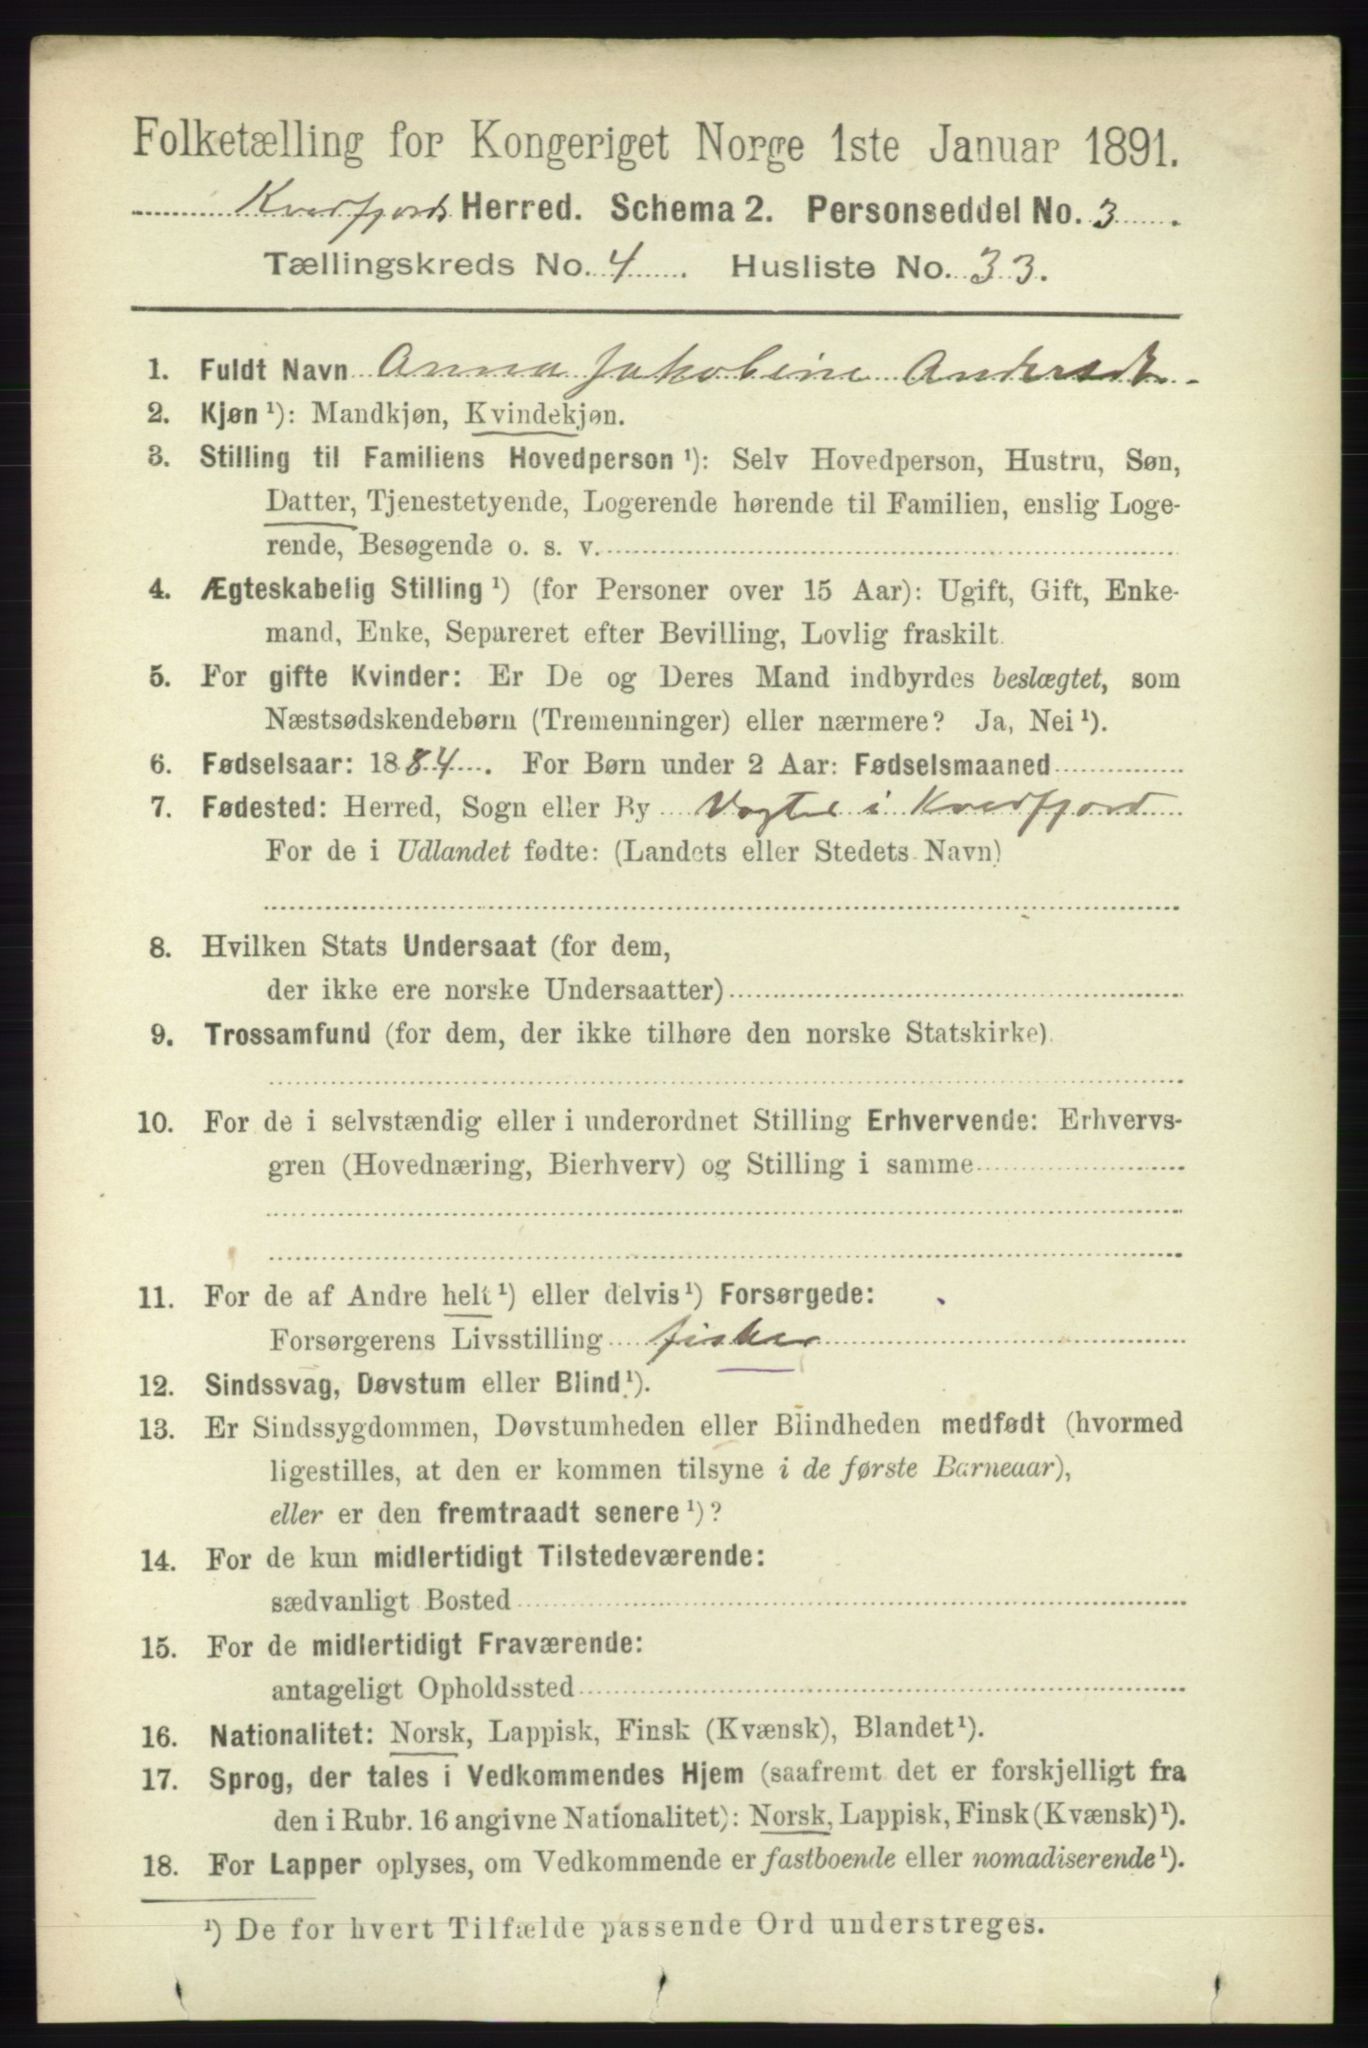 Folketælling for Kongeriget Norge 1ste Januar 1891.
Kvedfjords Herred. Schema 2. Personseddel No. 3.
Tællingskreds No. 4. Husliste No. 33.
1. Fuldt Navn Anna Jakobine Andersdtr.
2. Kjøn ¹): Mandkjøn, Kvindekjøn.
3. Stilling til Familiens Hovedperson ¹): Selv Hovedperson, Hustru, Søn,
Datter, Tjenestetyende, Logerende hørende til Familien, enslig Loge-
rende, Besøgende o. s. v.
4. Ægteskabelig Stilling ¹) (for Personer over 15 Aar): Ugift, Gift, Enke-
mand, Enke, Separeret efter Bevilling, Lovlig fraskilt.
5. For gifte Kvinder: Er De og Deres Mand indbyrdes beslægtet, som
Næstsødskendebørn (Tremenninger) eller nærmere? Ja, Nei ¹).
6. Fødselsaar: 1884. For Børn under 2 Aar: Fødselsmaaned
7. Fødested: Herred, Sogn eller By i Kvedfjord
For de i Udlandet fødte: (Landets eller Stedets Navn)
8. Hvilken Stats Undersaat (for dem,
der ikke ere norske Undersaatter)
9. Trossamfund (for dem, der ikke tilhøre den norske Statskirke).
10. For de i selvstændig eller i underordnet Stilling Erhvervende: Erhvervs-
gren (Hovednæring, Bierhverv) og Stilling i samme
11. For de af Andre helt ¹) eller delvis ¹) Forsørgede:
Forsørgerens Livsstilling fisker
12. Sindssvag, Døvstum eller Blind ¹).
13. Er Sindssygdommen, Døvstumheden eller Blindheden medfødt (hvormed
ligestilles, at den er kommen tilsyne i de første Barneaar),
eller er den fremtraadt senere ¹)?
14. For de kun midlertidigt Tilstedeværende:
sædvanligt Bosted
15. For de midlertidigt Fraværende:
antageligt Opholdssted
16. Nationalitet: Norsk, Lappisk, Finsk (Kvænsk), Blandet ¹).
17. Sprog, der tales i Vedkommendes Hjem (saafremt det er forskjelligt fra
den i Rubr. 16 angivne Nationalitet): Norsk, Lappisk, Finsk (Kvænsk) ¹).
18. For Lapper oplyses, om Vedkommende er fastboende eller nomadiserende ¹).
¹) De for hvert Tilfælde passende Ord understreges.